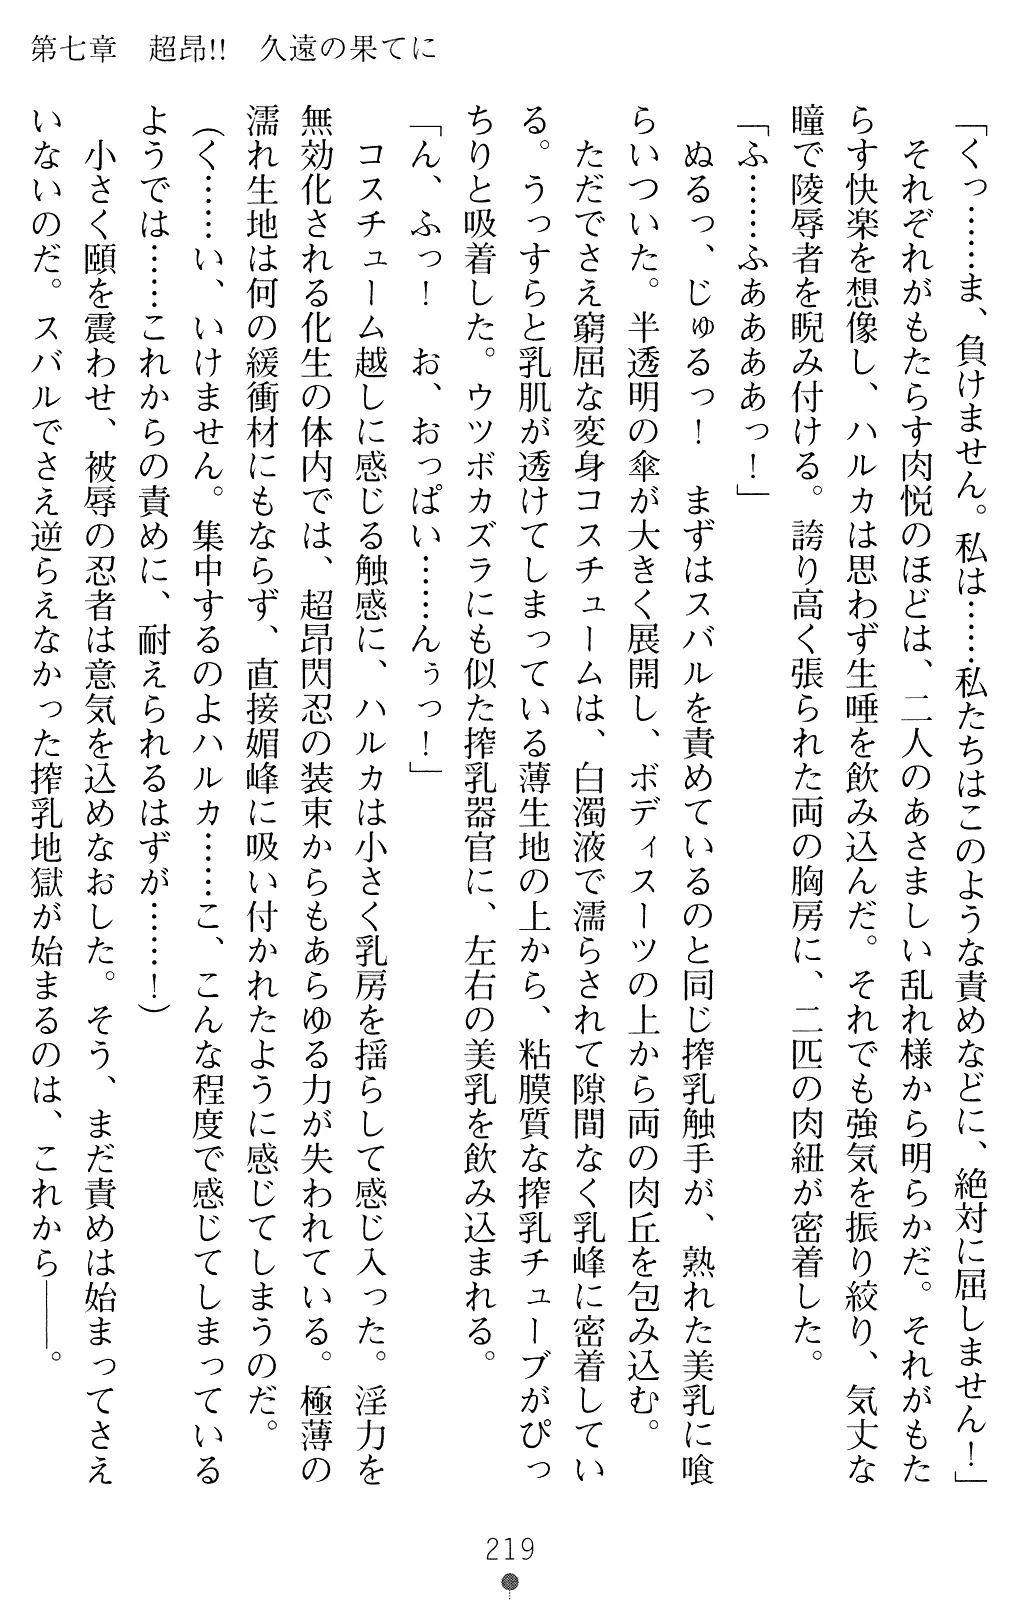 第七章　超昂!!　久遠の果てに
「くっ……ま、負けません。私は……私たちはこのような責めなどに、絶対に屈しません！」
　それぞれがもたらす肉悦のほどは、二人のあさましい乱れ様から明らかだ。それがもた
らす快楽を想像し、ハルカは思わず生唾を飲み込んだ。それでも強気を振り絞り、気丈な
瞳で陵辱者を睨み付ける。誇り高く張られた両の胸房に、二匹の肉紐が密着した。
「ふ……ふああああっ！」
　ぬるっ、じゅるっ！　まずはスバルを責めているのと同じ搾乳触手が、熟れた美乳に喰
らいついた。半透明の傘が大きく展開し、ボディスーツの上から両の肉丘を包み込む。
　ただでさえ窮屈な変身コスチュームは、白濁液で濡らされて隙間なく乳峰に密着してい
る。うっすらと乳肌が透けてしまっている薄生地の上から、粘膜質な搾乳チューブがぴっ
ちりと吸着した。ウツボカズラにも似た搾乳器官に、左右の美乳を飲み込まれる。
「ん、ふっ！　お、おっぱい……んぅっ！」
　コスチューム越しに感じる触感に、ハルカは小さく乳房を揺らして感じ入った。淫力を
無効化される化生の体内では、超昂閃忍の装束からもあらゆる力が失われている。極薄の
濡れ生地は何の緩衝材にもならず、直接媚峰に吸い付かれたように感じてしまうのだ。
（く……い、いけません。集中するのよハルカ……こ、こんな程度で感じてしまっている
ようでは……これからの責めに、耐えられるはずが……！）
　小さく頤を震わせ、被辱の忍者は意気を込めなおした。そう、まだ責めは始まってさえ
いないのだ。スバルでさえ逆らえなかった搾乳地獄が始まるのは、これから――。
219